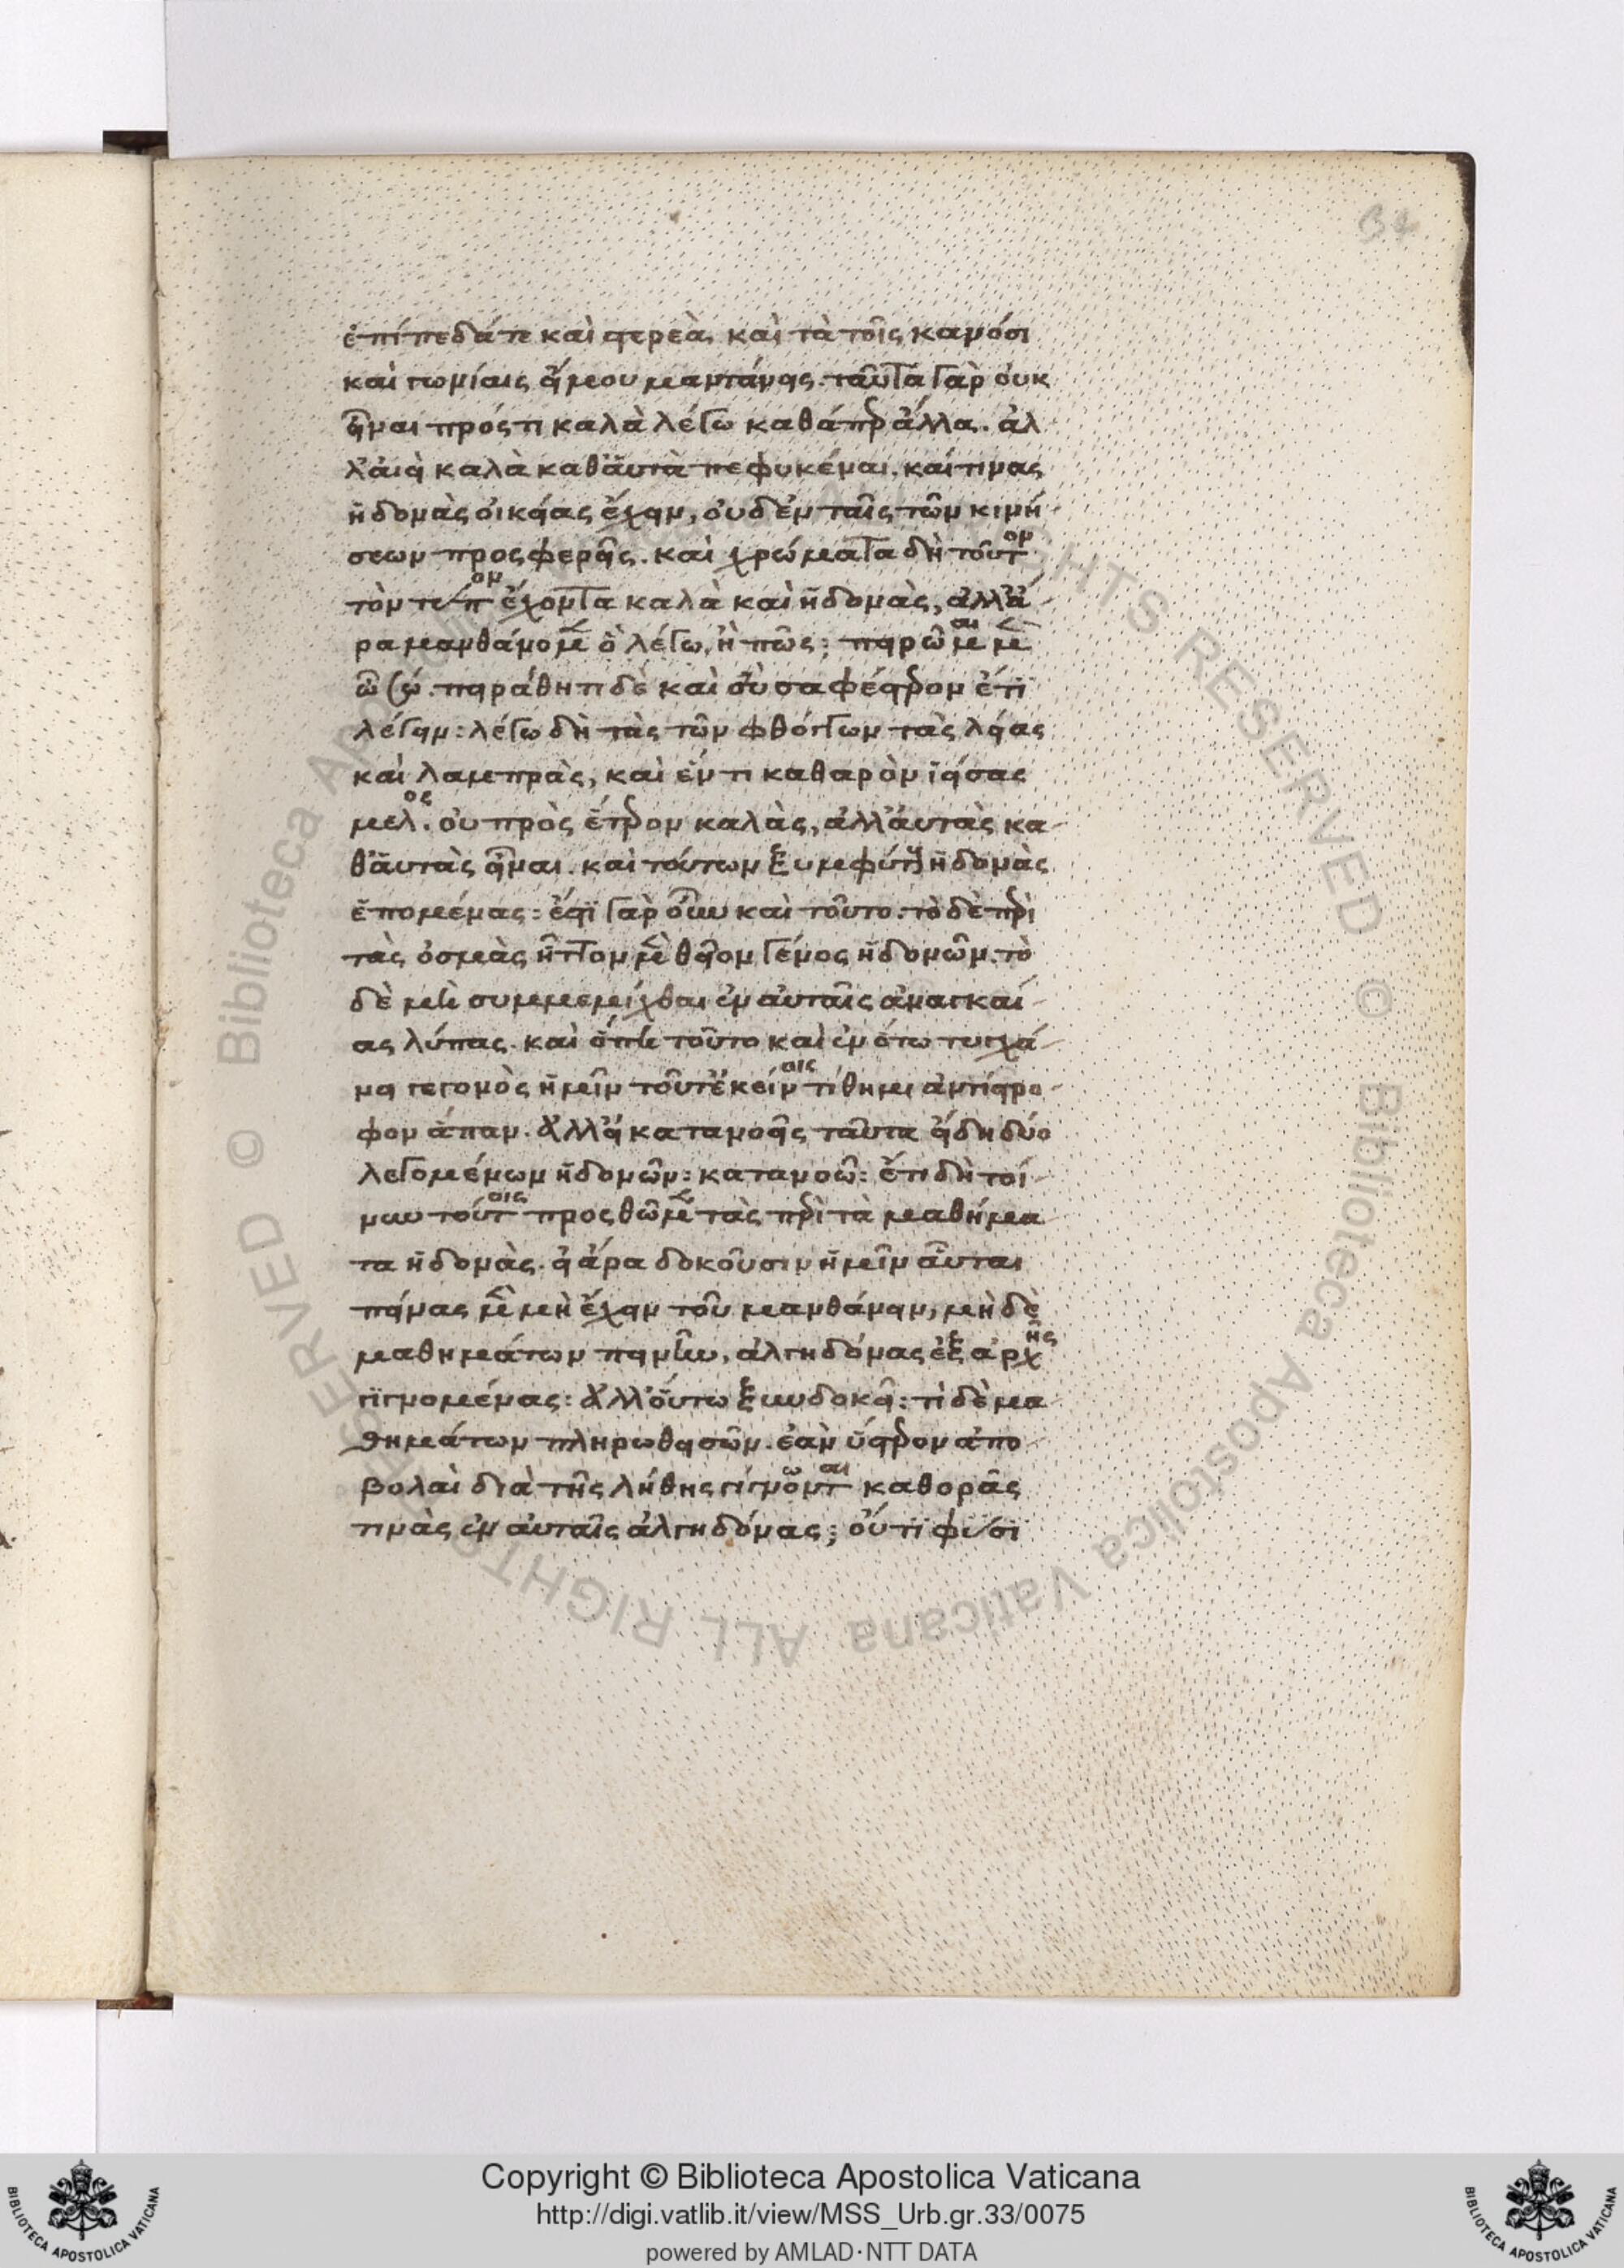 34
ἐπίπεδά τε καὶ στερεὰ. καὶ τὰ τοῖς κανόσι
καὶ γωνίαις εἴ μου μαντάνεις. ταῦτα γὰρ οὐκ
εἶναι πρός τι καλὰ λέγω καθάπερ ἄλλα. ἀλ
λ' ἀεὶ καλὰ καθ' αὑτὰ πεφυκέναι. καί τινας
ἡδονὰς οἰκείας ἔχειν, οὐδὲν ταῖς τῶν κινή
σεων προσφερεῖς. καὶ χρώματα δὴ τοῦτον
τὸν τύπον ἔχοντα καλὰ καὶ ἡδονὰς, ἀλλ' ἆ
ρα μανθάνομεν ὃ λέγω, ἢ πῶς; πειρῶμαι μὲν
ὦ σώ. πειράθητι δὲ καὶ σὺ σαφέστερον ἔτι
λέγειν: λέγω δὴ τὰς τῶν φθόγγων τὰς λείας
καὶ λαμπρὰς, καὶ ἕν τι καθαρὸν ἱείσας
μέλος. οὐ πρὸς ἕτερον καλὰς, ἀλλ' αὐτὰς κα
θ' αὑτὰς εἶναι. καὶ τούτων ξυμφύτους ἡδονὰς
ἑπομένας: ἔστι γὰρ οὖν καὶ τοῦτο. τὸ δὲ περὶ
τὰς ὀσμὰς ἧττον μὲν θεῖον γένος ἡδονῶν. τὸ
δὲ μὴ συμμεμίχθαι ἐν αὐταῖς ἀναγκαί
ας λύπας. καὶ ὅπη τοῦτο καὶ ἐν ὅτω τυγχά
νει γεγονὸς ἡμῖν τοῦτ' ἐκείνοις τίθημι ἀντίστρο
φον ἅπαν. ἀλλ' εἰ κατανοεῖς ταῦτα εἴδη δύο
λεγομένων ἡδονῶν: κατανοῶ: ἔτι δὴ τοί
νυν τούτοις προσθῶμεν τὰς περὶ τὰ μαθήμα
τα ἡδονὰς. εἰ ἄρα δοκοῦσιν ἡμῖν αὗται
πείνας μὲν μὴ ἔχειν τοῦ μανθάνειν, μὴ δὲ
μαθημάτων πείνην, ἀλγηδόνας ἐξ ἀρχῆς
γιγνομένας: ἀλλ' οὕτω ξυνδοκεῖ: τί δὲ μα
θημάτων πληρωθεισῶν. ἐὰν ὕστερον ἀπο
βολαὶ διὰ τῆς λήθης γίγνωνται καθορᾶς
τινὰς ἐν αὐταῖς ἀλγηδόνας; οὔ τι φύσι
Copyright © Biblioteca Apostolica Vaticana
http://digi.vatlib.it/view/MSS_Urb.gr.33/0075
powered by AMLAD·NTT DATA